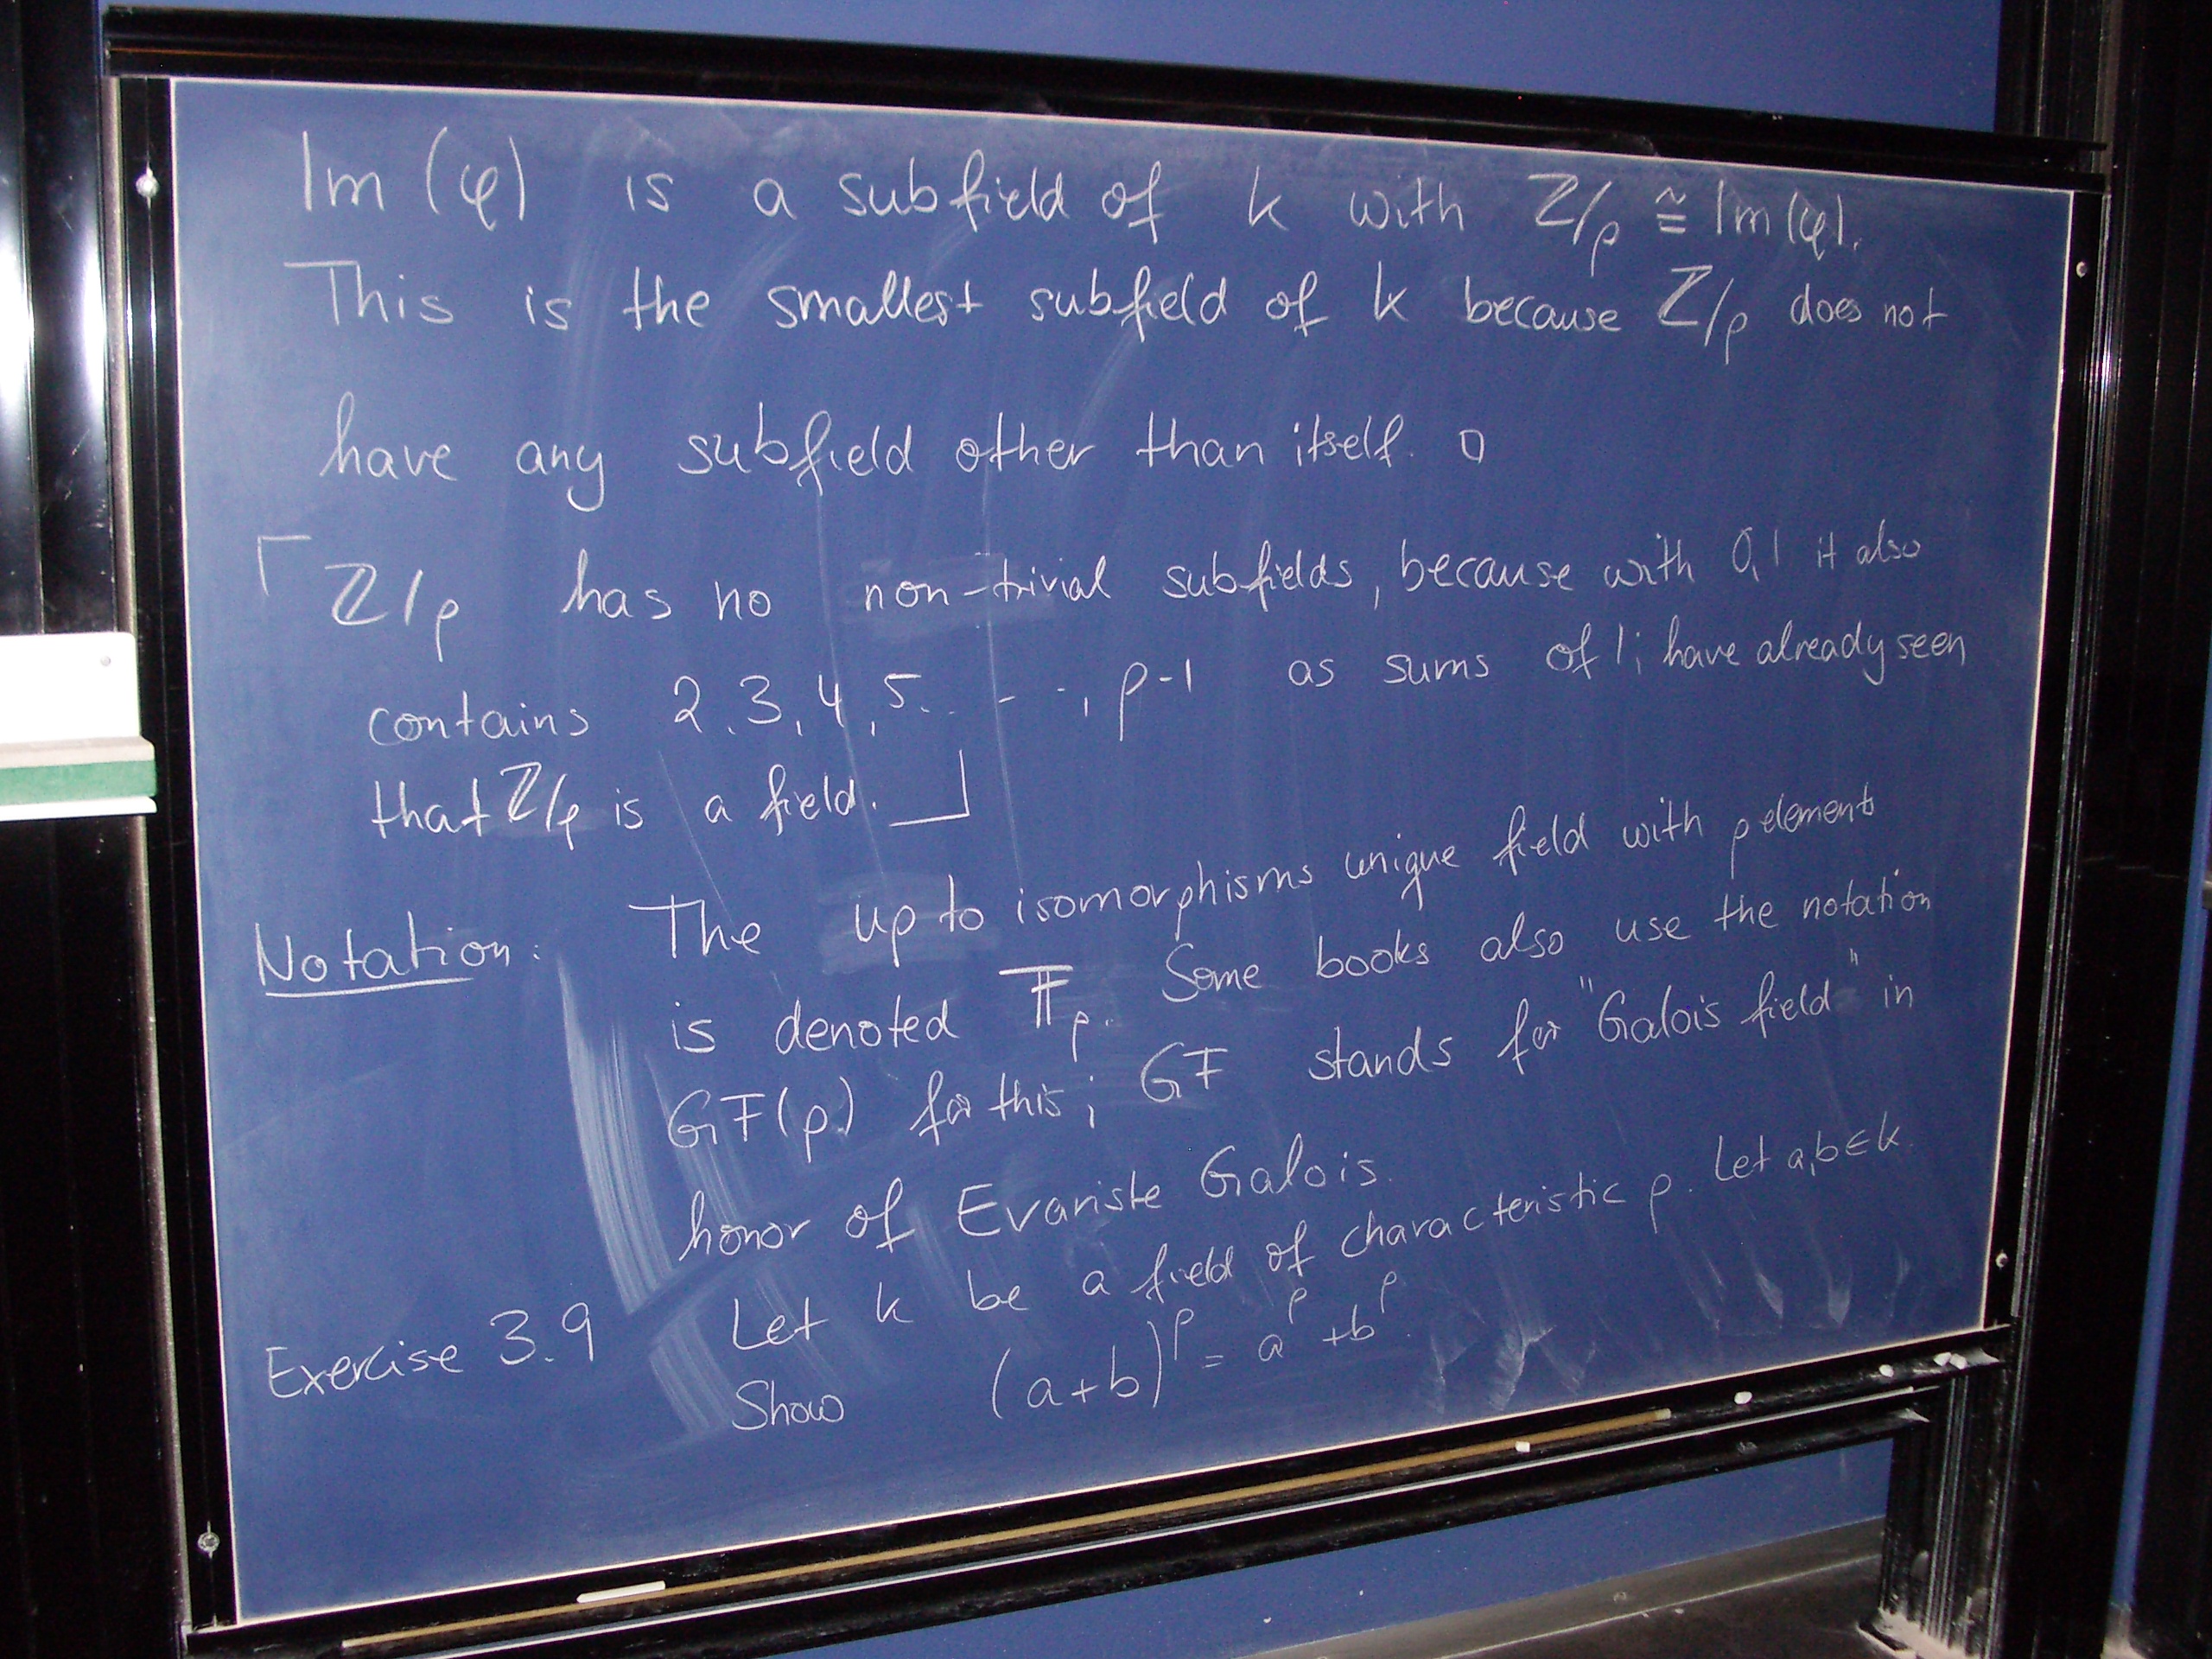 Im (φ) is a subfield of k with ℤ/p ≅ Im(φ).
This is the smallest subfield of k because ℤ/p does not
have any subfield other than itself. □
⌈ ℤ/p has no non-trivial subfields, because with 0,1 it also
contains 2,3,4,5. - - -, p-1 as sums of 1; have already seen
that ℤ/p is a field. ⌋
Notation: The up to isomorphisms unique field with p elements
is denoted 𝔽p. Some books also use the notation
GF(p) for this; GF stands for "Galois field" in
honor of Evariste Galois.
Exercise 3.9 Let k be a field of characteristic p. Let a,b∈k.
Show (a+b)^p = a^p + b^p.